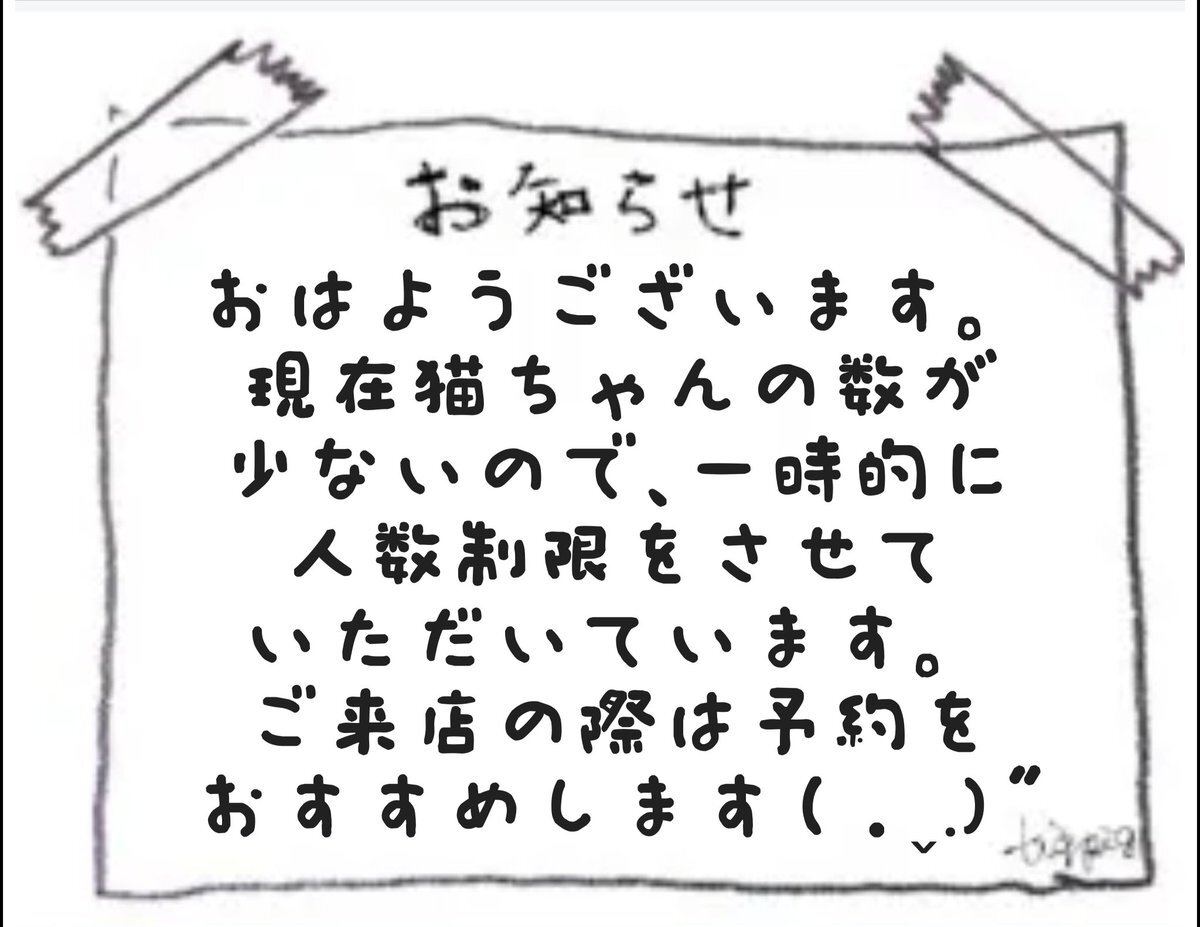 お知らせ
おはようございます。
現在猫ちゃんの数が
少ないので、一時的に
人数制限をさせて
いただいています。
ご来店の際は予約を
おすすめします( . ˬ .)"